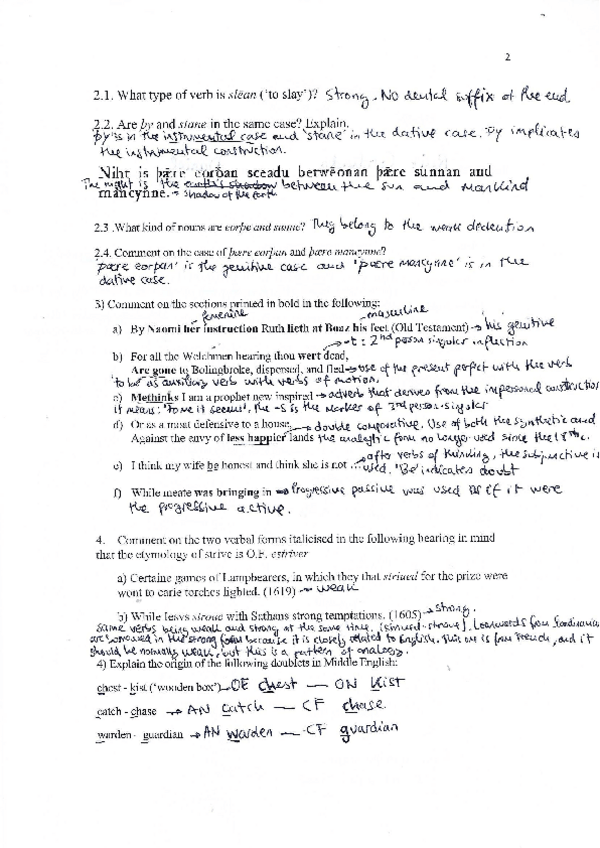 2
2.1. What type of verb is slēan ('to slay')? Strong. No dental suffix at the end
2.2. Are þy and stane in the same case? Explain.
'þy' is in the instrumental case and 'stane' in the dative case. Þy implicates
the instrumental construction.
Niht is þǣre eorðan sceadu betwēonan þǣre sunnan and
The night is the earth's shadow between the sun and mankind
mancynne. shadow of the earth
2.3 .What kind of nouns are eorþe and sunne? They belong to the weak declention
2.4. Comment on the case of þære eorþan and þære mancynne?
'þære eorþan' is the genitive case and 'þære mancynne' is in the
dative case.
3) Comment on the sections printed in bold in the following:
femenine masculine
a) By Naomi her instruction Ruth lieth at Boaz his feet (Old Testament) → his genitive
-t: 2nd person singular inflection
b) For all the Welchmen hearing thou wert dead,
Are gone to Bolingbroke, dispersed, and fled → use of the present perfect with the verb
to be as auxiliary verb with verbs of motion.
c) Methinks I am a prophet new inspired → adverb that derives from the impersonal construction
it means: 'to me it seems', the -s is the marker of 3rd person singular
d) Or as a moat defensive to a house, → double comparative. Use of both the synthetic and
Against the envy of less happier lands the analytic form no longer used since the 18th c.
after verbs of thinking, the subjunctive is
e) I think my wife be honest and think she is not ... used. 'Be' indicates doubt
f) While meate was bringing in → Progressive passive was used as if it were
the progressive active.
4. Comment on the two verbal forms italicised in the following bearing in mind
that the etymology of strive is O.F. estriver
a) Certaine games of Lampbearers, in which they that striued for the prize were
wont to carie torches lighted. (1619) → weak
b) While Iesvs stroue with Sathans strong temptations. (1605) → strong.
Same verbs being weak and strong at the same time. (strived-strove). Loanwords from Scandinavian
are borrowed in the strong form because it is closely related to English. This one is from French, and it
should be normally weak, but this is a pattern of analogy.
4) Explain the origin of the following doublets in Middle English:
chest - kist ('wooden box') → OE chest — ON kist
catch - chase → AN catch — CF chase
warden - guardian → AN warden — CF guardian